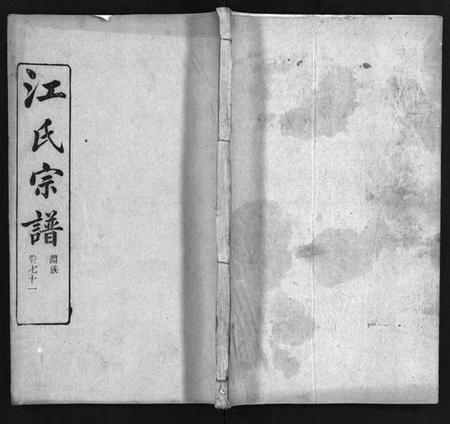 江氏宗譜
淵族
卷七十一